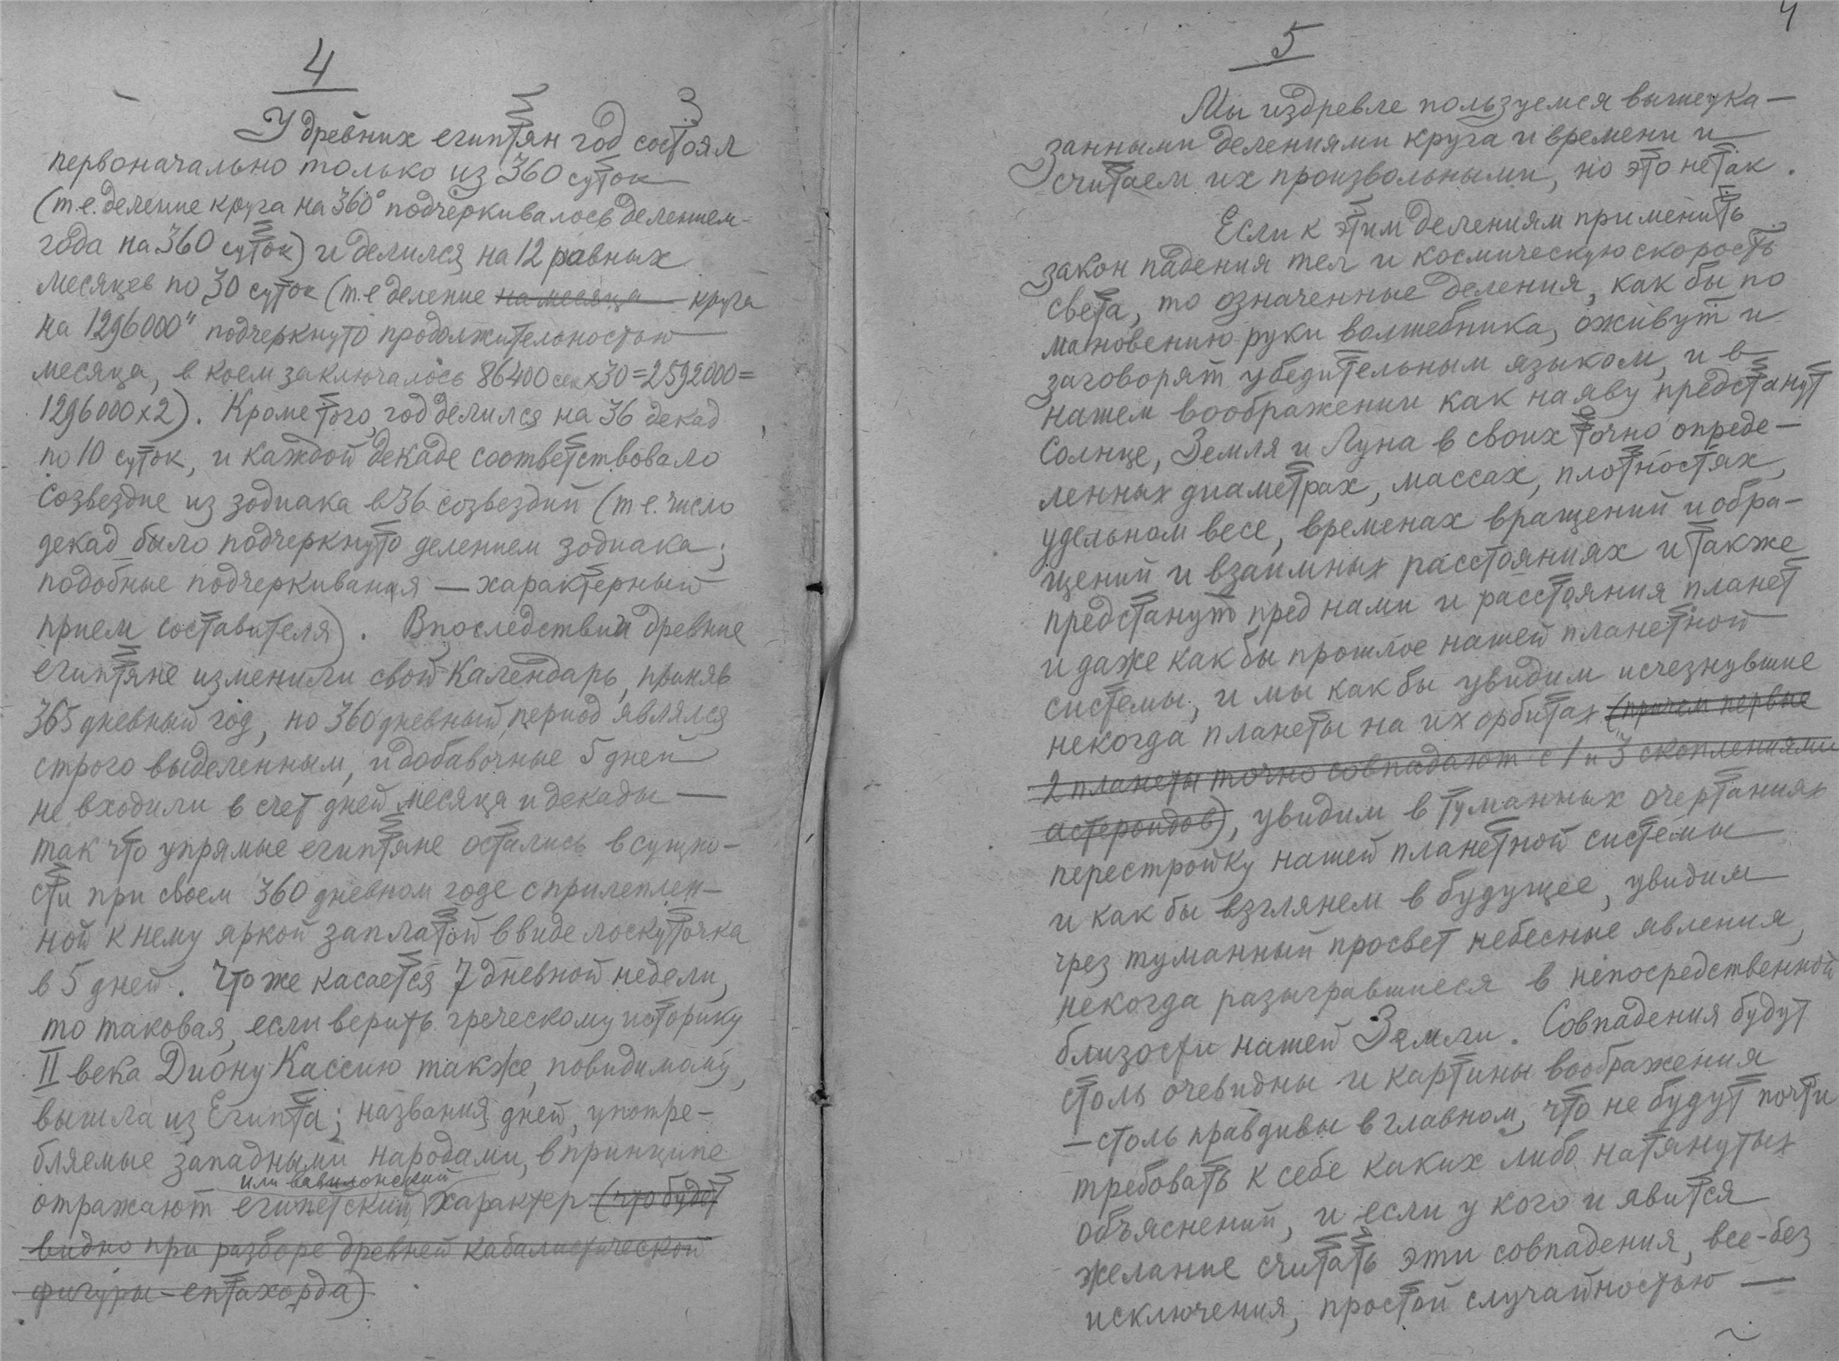 4
3
У древних египтян год состоял
первоначально только из 360 суток
(т.е. деление круга на 360° подчеркивалось делением
года на 360 суток) и делился на 12 равных
месяцев по 30 суток (т.е деление на месяца круга
на 1296000" подчеркнуто продолжительностью
месяца, в коем заключалось 86400 сек x30=2592000=
1296000x2). Кроме того, год делился на 36 декад
по 10 суток, и каждой декаде соответствовало
созвездие из зодиака в 36 созвездий (т е. число
декад было подчеркнуто делением зодиака;
подобные подчеркивания — характерный
прием составителя). Впоследствии древние
египтяне изменили свой календарь, приняв
365 дневный год, но 360 дневный период являлся
строго выделенным, и добавочные 5 дней
не входили в счет дней месяца и декады —
так что упрямые египтяне остались в сущно-
сти при своем 360 дневном годе с прилеплен-
ной к нему яркой заплатой в виде лоскуточка
в 5 дней. Что же касается 7 дневной недели,
то таковая, если верить греческому историку
II века Диону Кассию также, повидимому,
вышла из Египта; названия дней, употре-
бляемые западными народами, в принципе
или вавилонский
отражают египетский характер (что будет
видно при разборе древней кабалистической
фигуры - ептахорда)
4
5
Мы издревле пользуемся вышеука-
занными делениями круга и времени и
считаем их произвольными, но это не так.
Если к этим делениям применить
закон падения тел и космическую скорость
света, то означенные деления, как бы по
мановению руки волшебника, оживут и
заговорят убедительным языком, и в
нашем воображении как наяву предстанут
Солнце, Земля и Луна в своих точно опреде-
ленных диаметрах, массах, плотностях,
удельном весе, временах вращений и обра-
щений и взаимных расстояниях и также
предстанут пред нами и расстояния планет
и даже как бы прошлое нашей планетной
системы, и мы как бы увидим исчезнувшие
некогда планеты на их орбитах (причем первые
2 планеты точно совпадают с 1 и 3 скоплениями
астероидов), увидим в туманных очертаниях
перестройку нашей планетной системы
и как бы взглянем в будущее, увидим
чрез туманный просвет небесные явления,
некогда разыгравшиеся в непосредственной
близости нашей Земли. Совпадения будут
столь очевидны и картины воображения
— столь правдивы в главном, что не будут почти
требовать к себе каких либо натянутых
объяснений, и если у кого и явится
желание считать эти совпадения, все-без
исключения, простой случайностью —